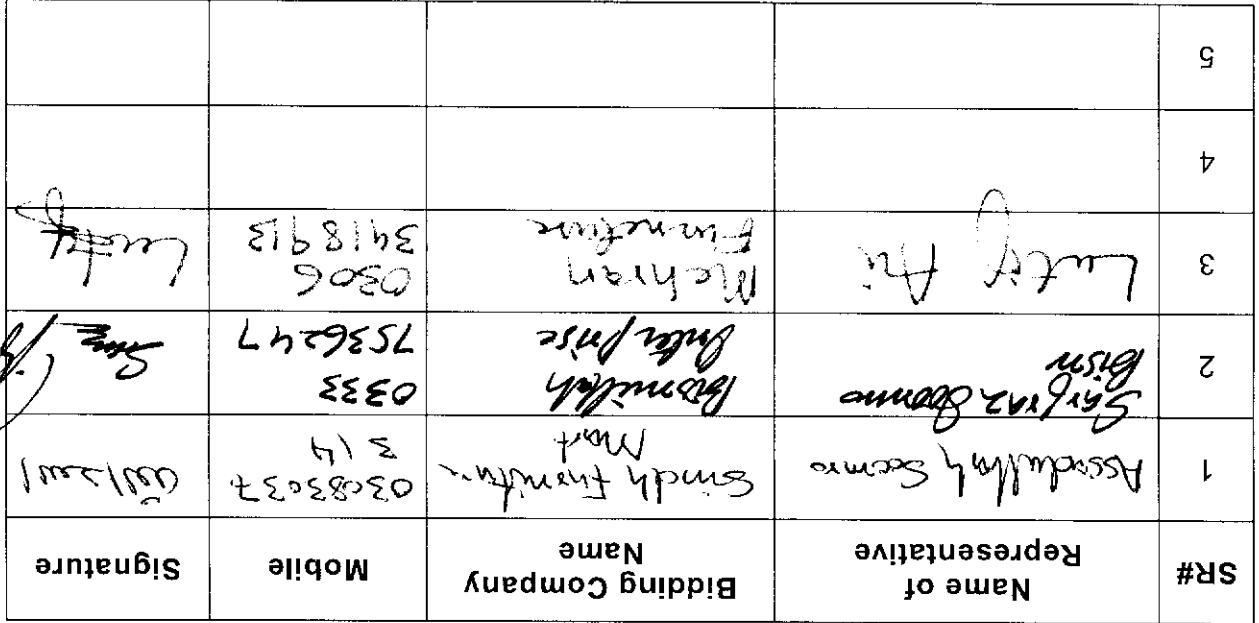 SR# Name of Representative Bidding Company Name Mobile Signature
1 Assadullah Soomro Sindh Furniture Mart 03083037 314 اسداللہ
2 Sarfraz Soomro Bismillah Enterprise 0333 7536247
3 Latif Ali Mehran Furneture 0306 3418913 Latif
4
5